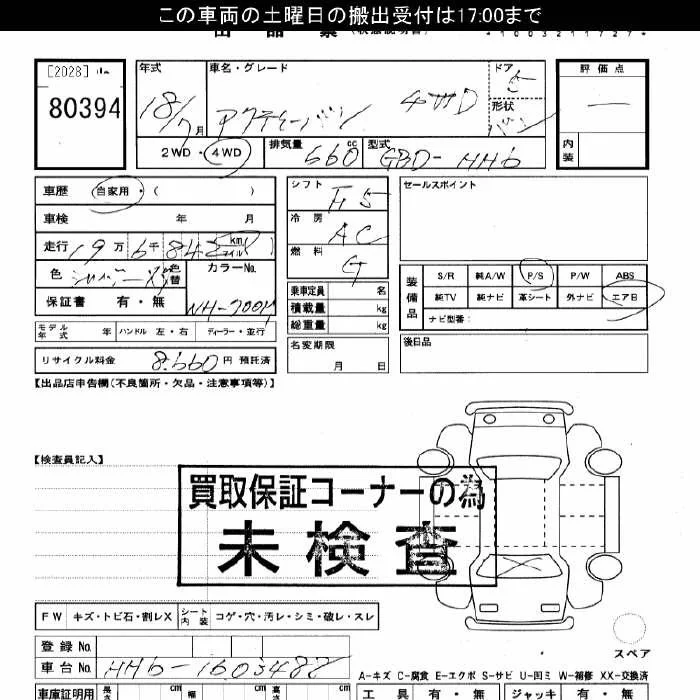 この車両の土曜日の搬出受付は17:00まで
[2028]
80394
年式 車名・グレード ドア 5 評価点
18/7月 アクティーバン 4WD 形状 バン
2WD・4WD 排気量 660cc 型式 GBD-HH6 内装
車歴 自家用・( ) シフト F5 セールスポイント
車検 年 月 冷房 AC
走行 19万6千842 km マイル 燃料 G
色 シルバー 色替 カラーNo. NH-700M
保証書 有・無
乗車定員 名
積載量 kg
総重量 kg
装備品 S/R 純A/W P/S P/W ABS
純TV 純ナビ 革シート 外ナビ エアB
ナビ型番:
モデル年式 年 ハンドル 左・右 ディーラー・並行
名変期限 月 日 後日品
リサイクル料金 8,660円 預託済
【出品店申告欄(不良箇所・欠品・注意事項等)】
【検査員記入】
買取保証コーナーの為
未検査
FW キズ・トビ石・割レX シート内装 コゲ・穴・汚レ・シミ・破レ・スレ
スペア
登録No.
車台No. HH6-1603487
A-キズ C-腐食 E-エクボ S-サビ U-凹ミ W-補修 XX-交換済
車庫証明用 長さ cm 幅 cm 高さ cm 工具 有・無 ジャッキ 有・無